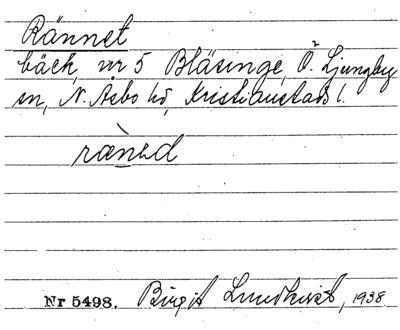 Rännet
bäck, nr 5 Bläsinge, Ö. Ljungby
sn, N. Åsbo hd, Kristianstads l.
ränəd
Nr 5498. Birgit Lundkvist, 1938